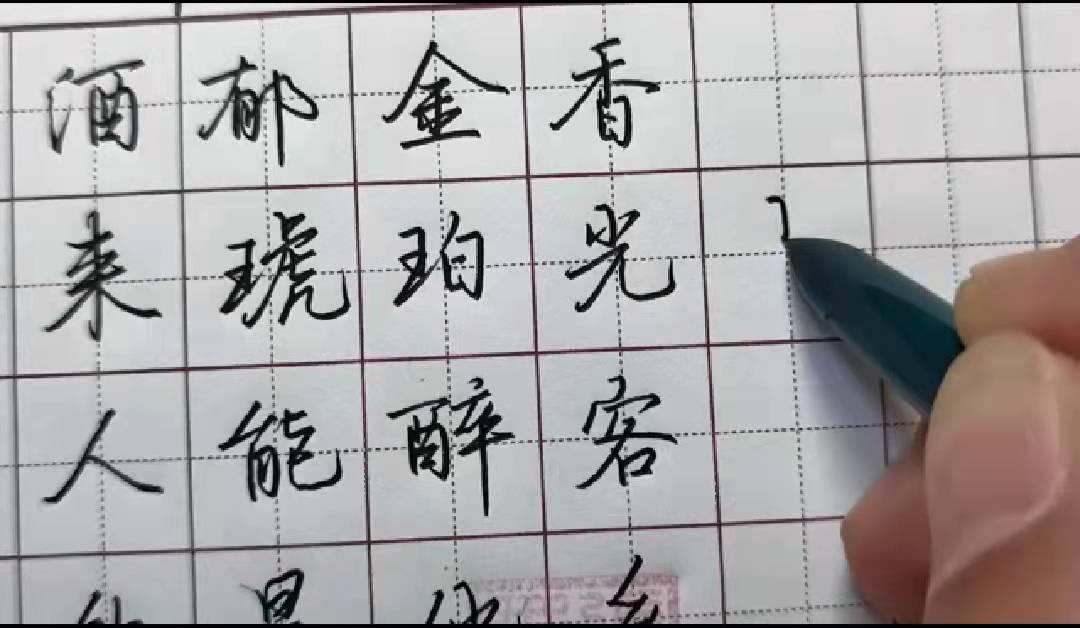 酒郁金香
来琥珀光
人能醉客